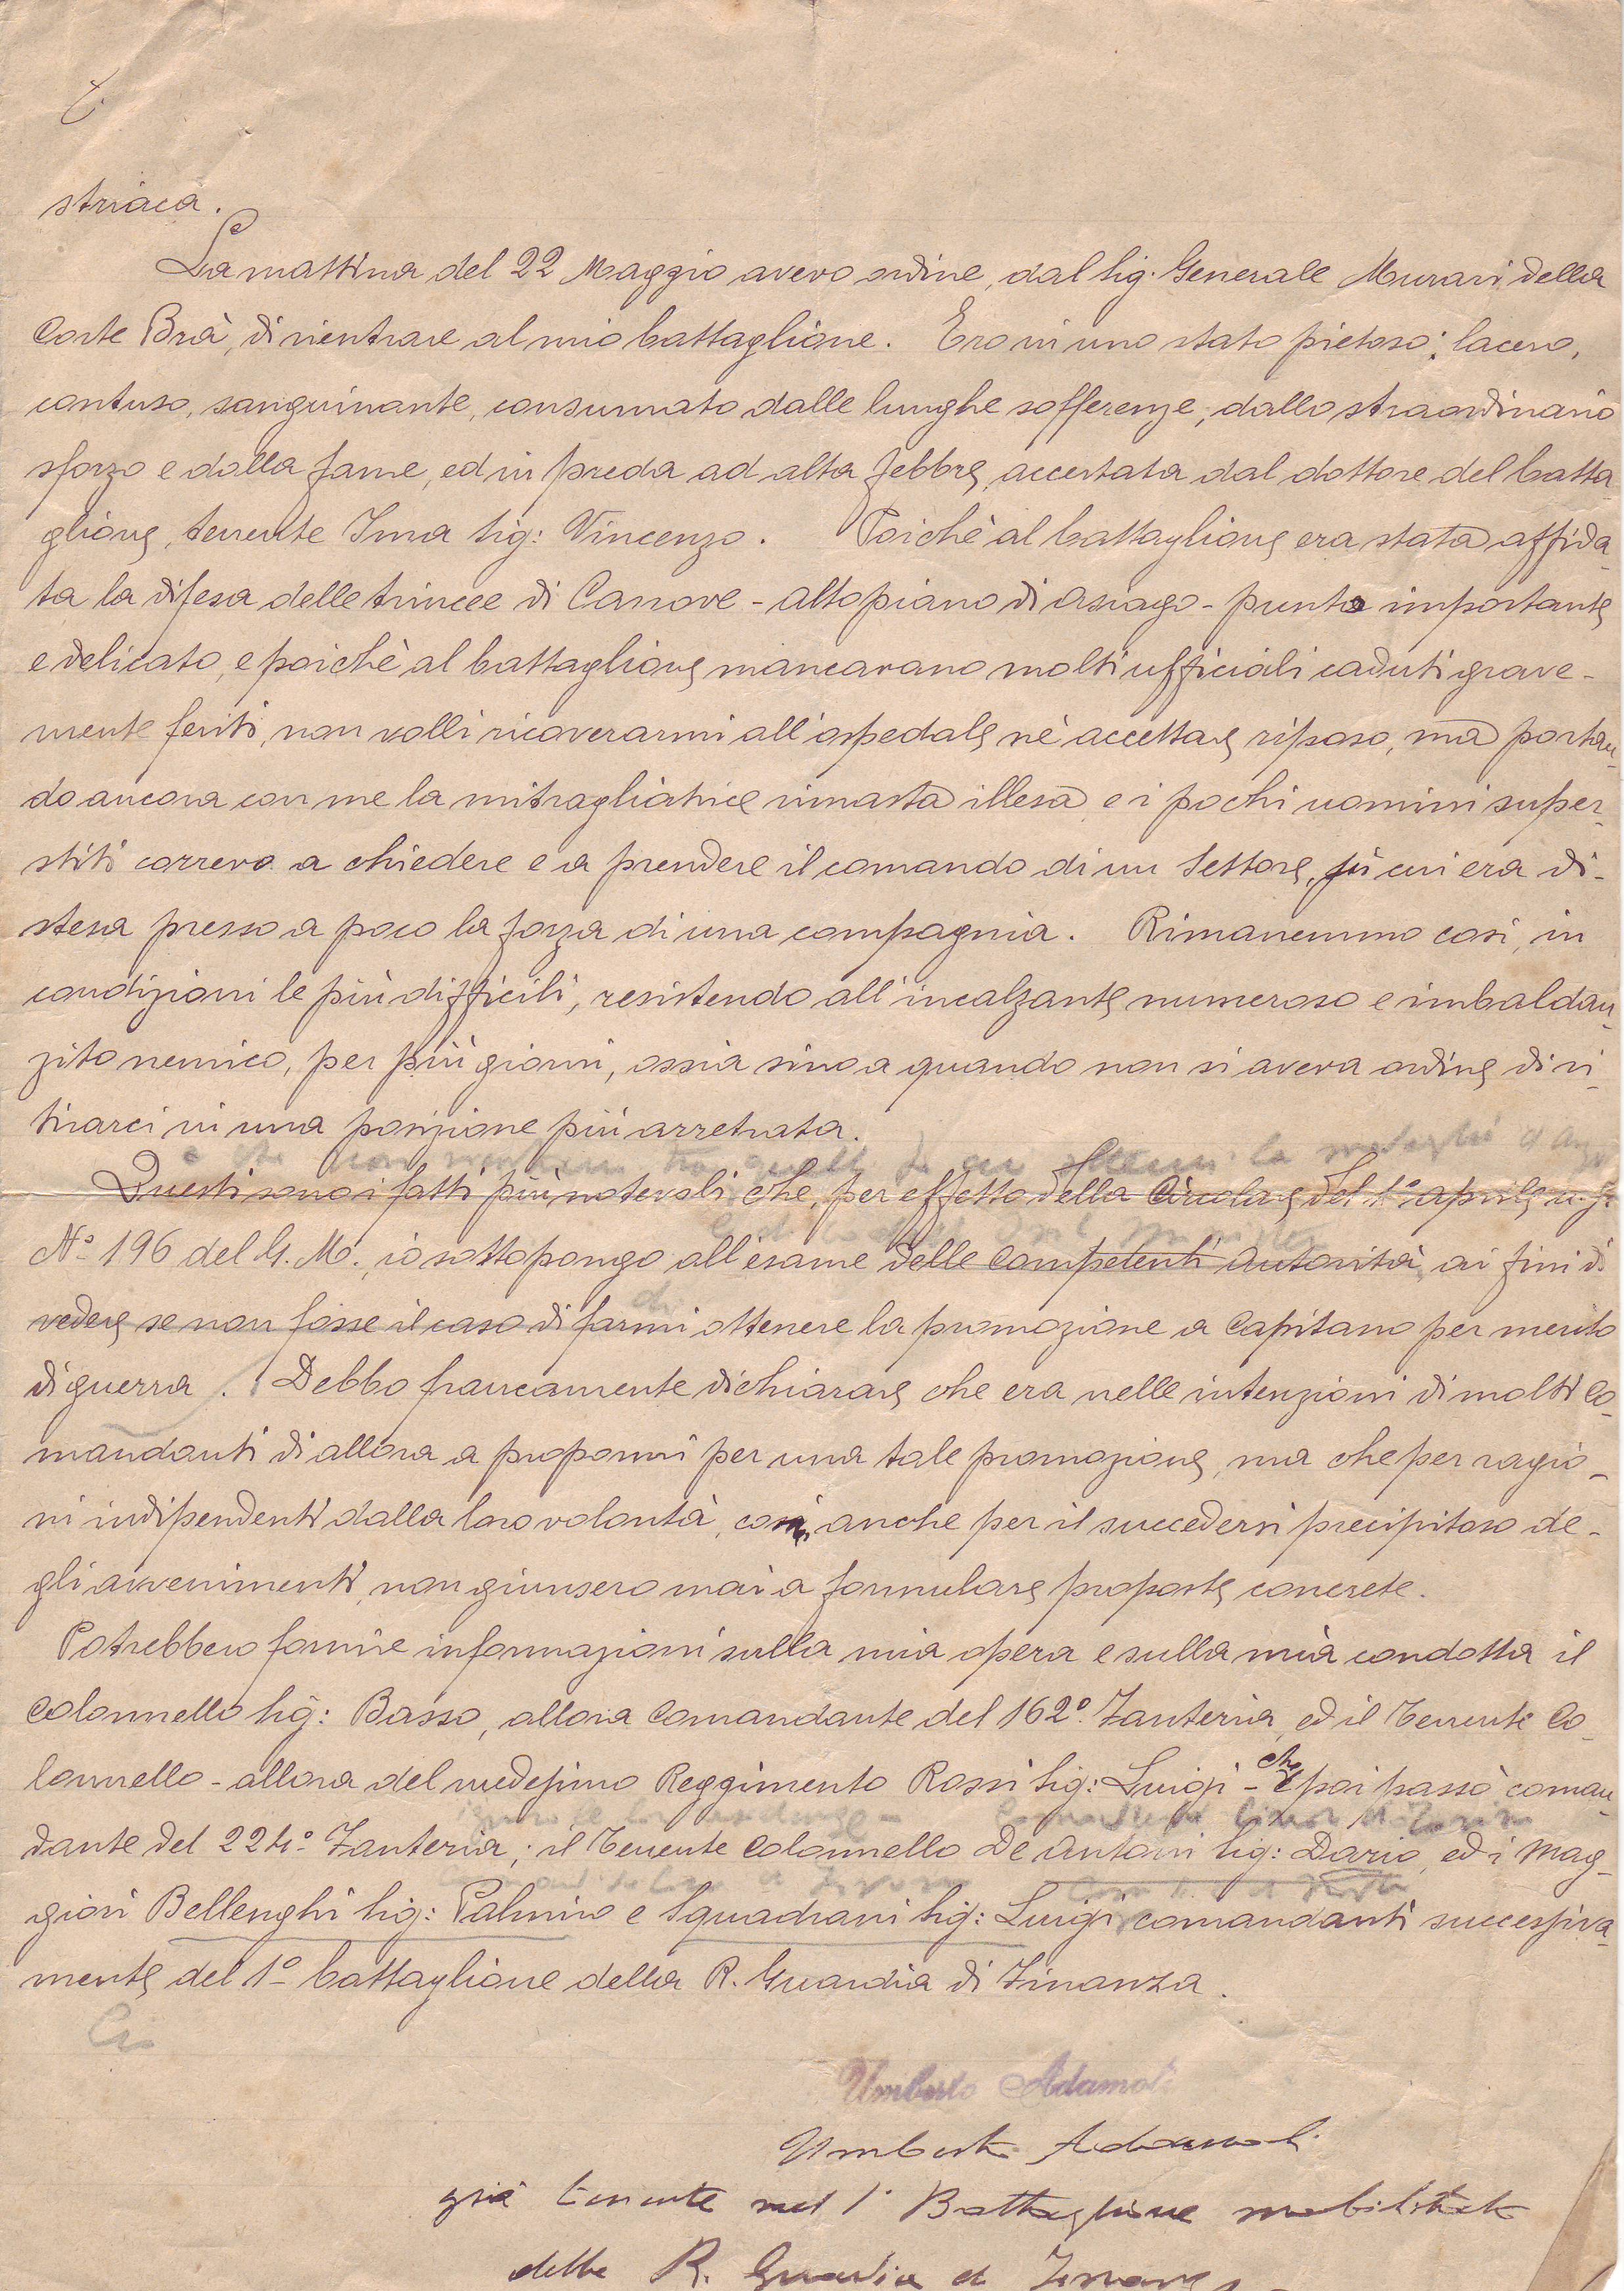 striaca.
La mattina del 22 Maggio avevo ordine, dal Sig. Generale Murari della
Corte Brà, di rientrare al mio battaglione. Ero in uno stato pietoso: lacero,
contuso, sanguinante, consumato dalle lunghe sofferenze, dallo straordinario
sforzo e dalla fame, ed in preda ad alta febbre, accertata dal dottore del batta-
glione, tenente Sig: Vincenzo. Poichè al battaglione era stata affida-
ta la difesa delle trincee di Canove - altopiano di Asiago - punto importante
e delicato, e poichè al battaglione mancavano molti ufficiali caduti grave-
mente feriti, non volli ricoverarmi all'ospedale nè accettare riposo, ma portan-
do ancora con me la mitragliatrice rimasta illesa e i pochi uomini super-
stiti correvo a chiedere e a prendere il comando di un Settore, su cui era di-
stesa presso a poco la forza di una compagnia. Rimanemmo così, in
condizioni le più difficili, resistendo all'incalzante numeroso e imbaldan-
zito nemico, per più giorni, ossia sino a quando non si aveva ordine di ri-
tirarci in una posizione più arretrata.
la medaglia d'arg
Questi sono i fatti più notevoli che, per effetto della Circolare del 1° aprile u. s.
N° 196 del G. M., io sottopongo all'esame delle competenti Autorità, ai fini di
di
vedere se non fosse il caso di farmi ottenere la promozione a Capitano per merito
di guerra. Debbo francamente dichiarare che era nelle intenzioni di molti Co-
mandanti di allora a propormi per una tale promozione, ma che per ragio-
ni indipendenti dalla loro volontà, così anche per il succedersi precipitoso de-
gli avvenimenti, non giunsero mai a formulare proposte concrete.
Potrebbero fornire informazioni sulla mia opera e sulla mia condotta il
Colonnello Sig: Basso, allora Comandante del 162° Fanteria, ed il Tenente Co-
che
lonnello - allora del medesimo Reggimento Rossi Sig: Luigi - e poi passò coman-
dante del 224° Fanteria; il Tenente Colonnello De Antoni Sig: Dario, ed i Mag-
giori Bellenghi Sig: Palmiro e Squadrani Sig: Luigi comandanti successiva-
mente del 1° battaglione della R. Guardia di Finanza.
Umberto Adamoli
Umberto Adamoli
già tenente nel 1° Battaglione mobilitato
della R. Guardia di Finanza